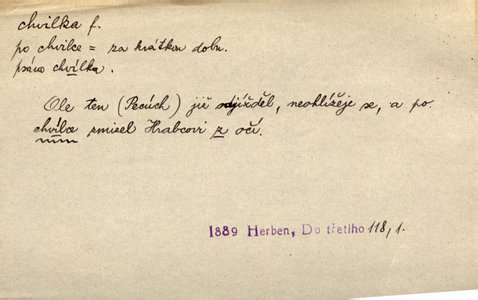 chvilka f.
po chvilce = za krátkou dobu.
psáno chvílka.
Ale ten (Pecúch) již odjížděl, neohlížeje se, a po
chvílce zmizel Hrabcovi z očí.
1889 Herben, Do třetího 118, 1.